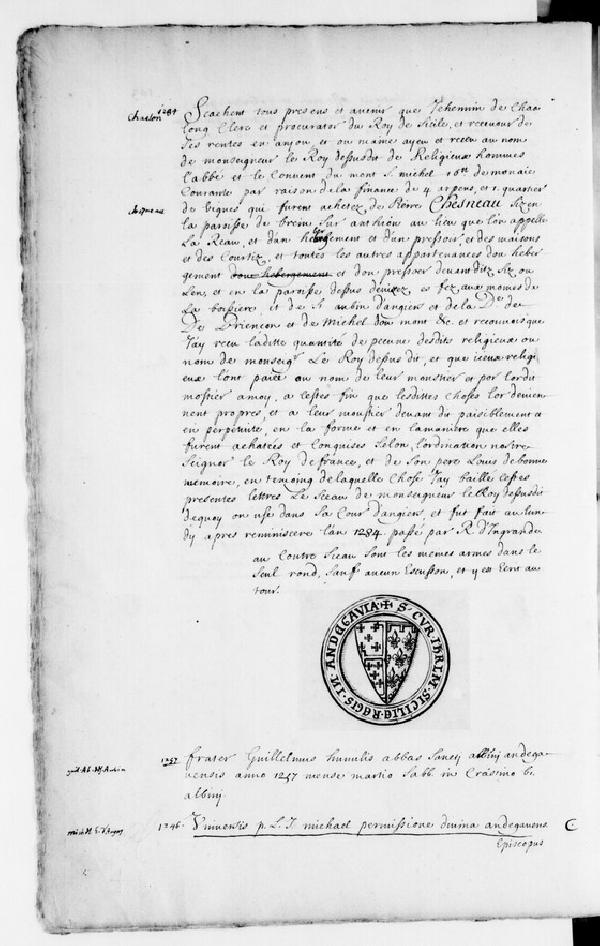 1284 Scachent tous presens et avenir que Jehennin de Chaa
Chaalon
long Clerc et procurator du Roy de Sicile, et recevour de
ses rentes en anjou, et ou maine ayeu et receu au nom
de monseigneur le Roy dessusdit de Religieux hommes
l'abbé et le Convent du mont St michel de monoie
Courante par raison de la finance de 4 arpens, et 1. quartier
de vignes que furent achetez, de Pierre Chesneau six en
la paroisse de Brein sur au lieu que l'on appelle
La Reau, et d'un herbergement et d'un pressoir, et des maisons
et des Courtiz, et toutes les autres appartenances dou heber
gement dou hebergement et dou pressoer devantditz Siz ou
Leu, et en la paroisse dessus devizez, es fez aux moines de
La boissiere, et de St aubin d'angiers et de la De de
De Briencon et de Michel dou mont &c. et reconnois que
J'ay receu ladite quantité de pecune desdits religieux ou
nom de monseigr Le Roy dessus dit, et que iceux religi
eux l'ont paiée au nom de leur monstier et por lordit
mostier a moy, a cestes fin que lesdittes choses lor demeu
nent propres, et a leur moustier devant dit paisiblement et
en perpetuité, en la forme et en la maniere que elles
furent achatées et Conquises Selon, l'ordination nostre
Seignor le Roy de france, et de Son pere Louis de bonne
mémoire, en tesmoing de laquelle chose J'ay baillé cestes
presentes lettres Le Sceau de monseigneur le Roy dessusdit
dequoy on use dans Sa Cour d'angiers et fut fait au lun
dy apres reminiscere l'an 1284. passé par R. d'Ingrande
au Contre Sceau Sont les memes armes dans le
Seul rond, Sans aucun Escusson, et y est Ecrit au
tour.
✠ S. CVR. IHRLM. SICILIE. REGIS. IN. ANDEGAVIA
1257 frater Guillelmus humilis abbas Sancti albini andega
vensis anno 1257 mense martio Sabb. in Crastino b.
albini.
1246. Universis p. L. J. michael permissione divina andegavens
Episcopus
C.